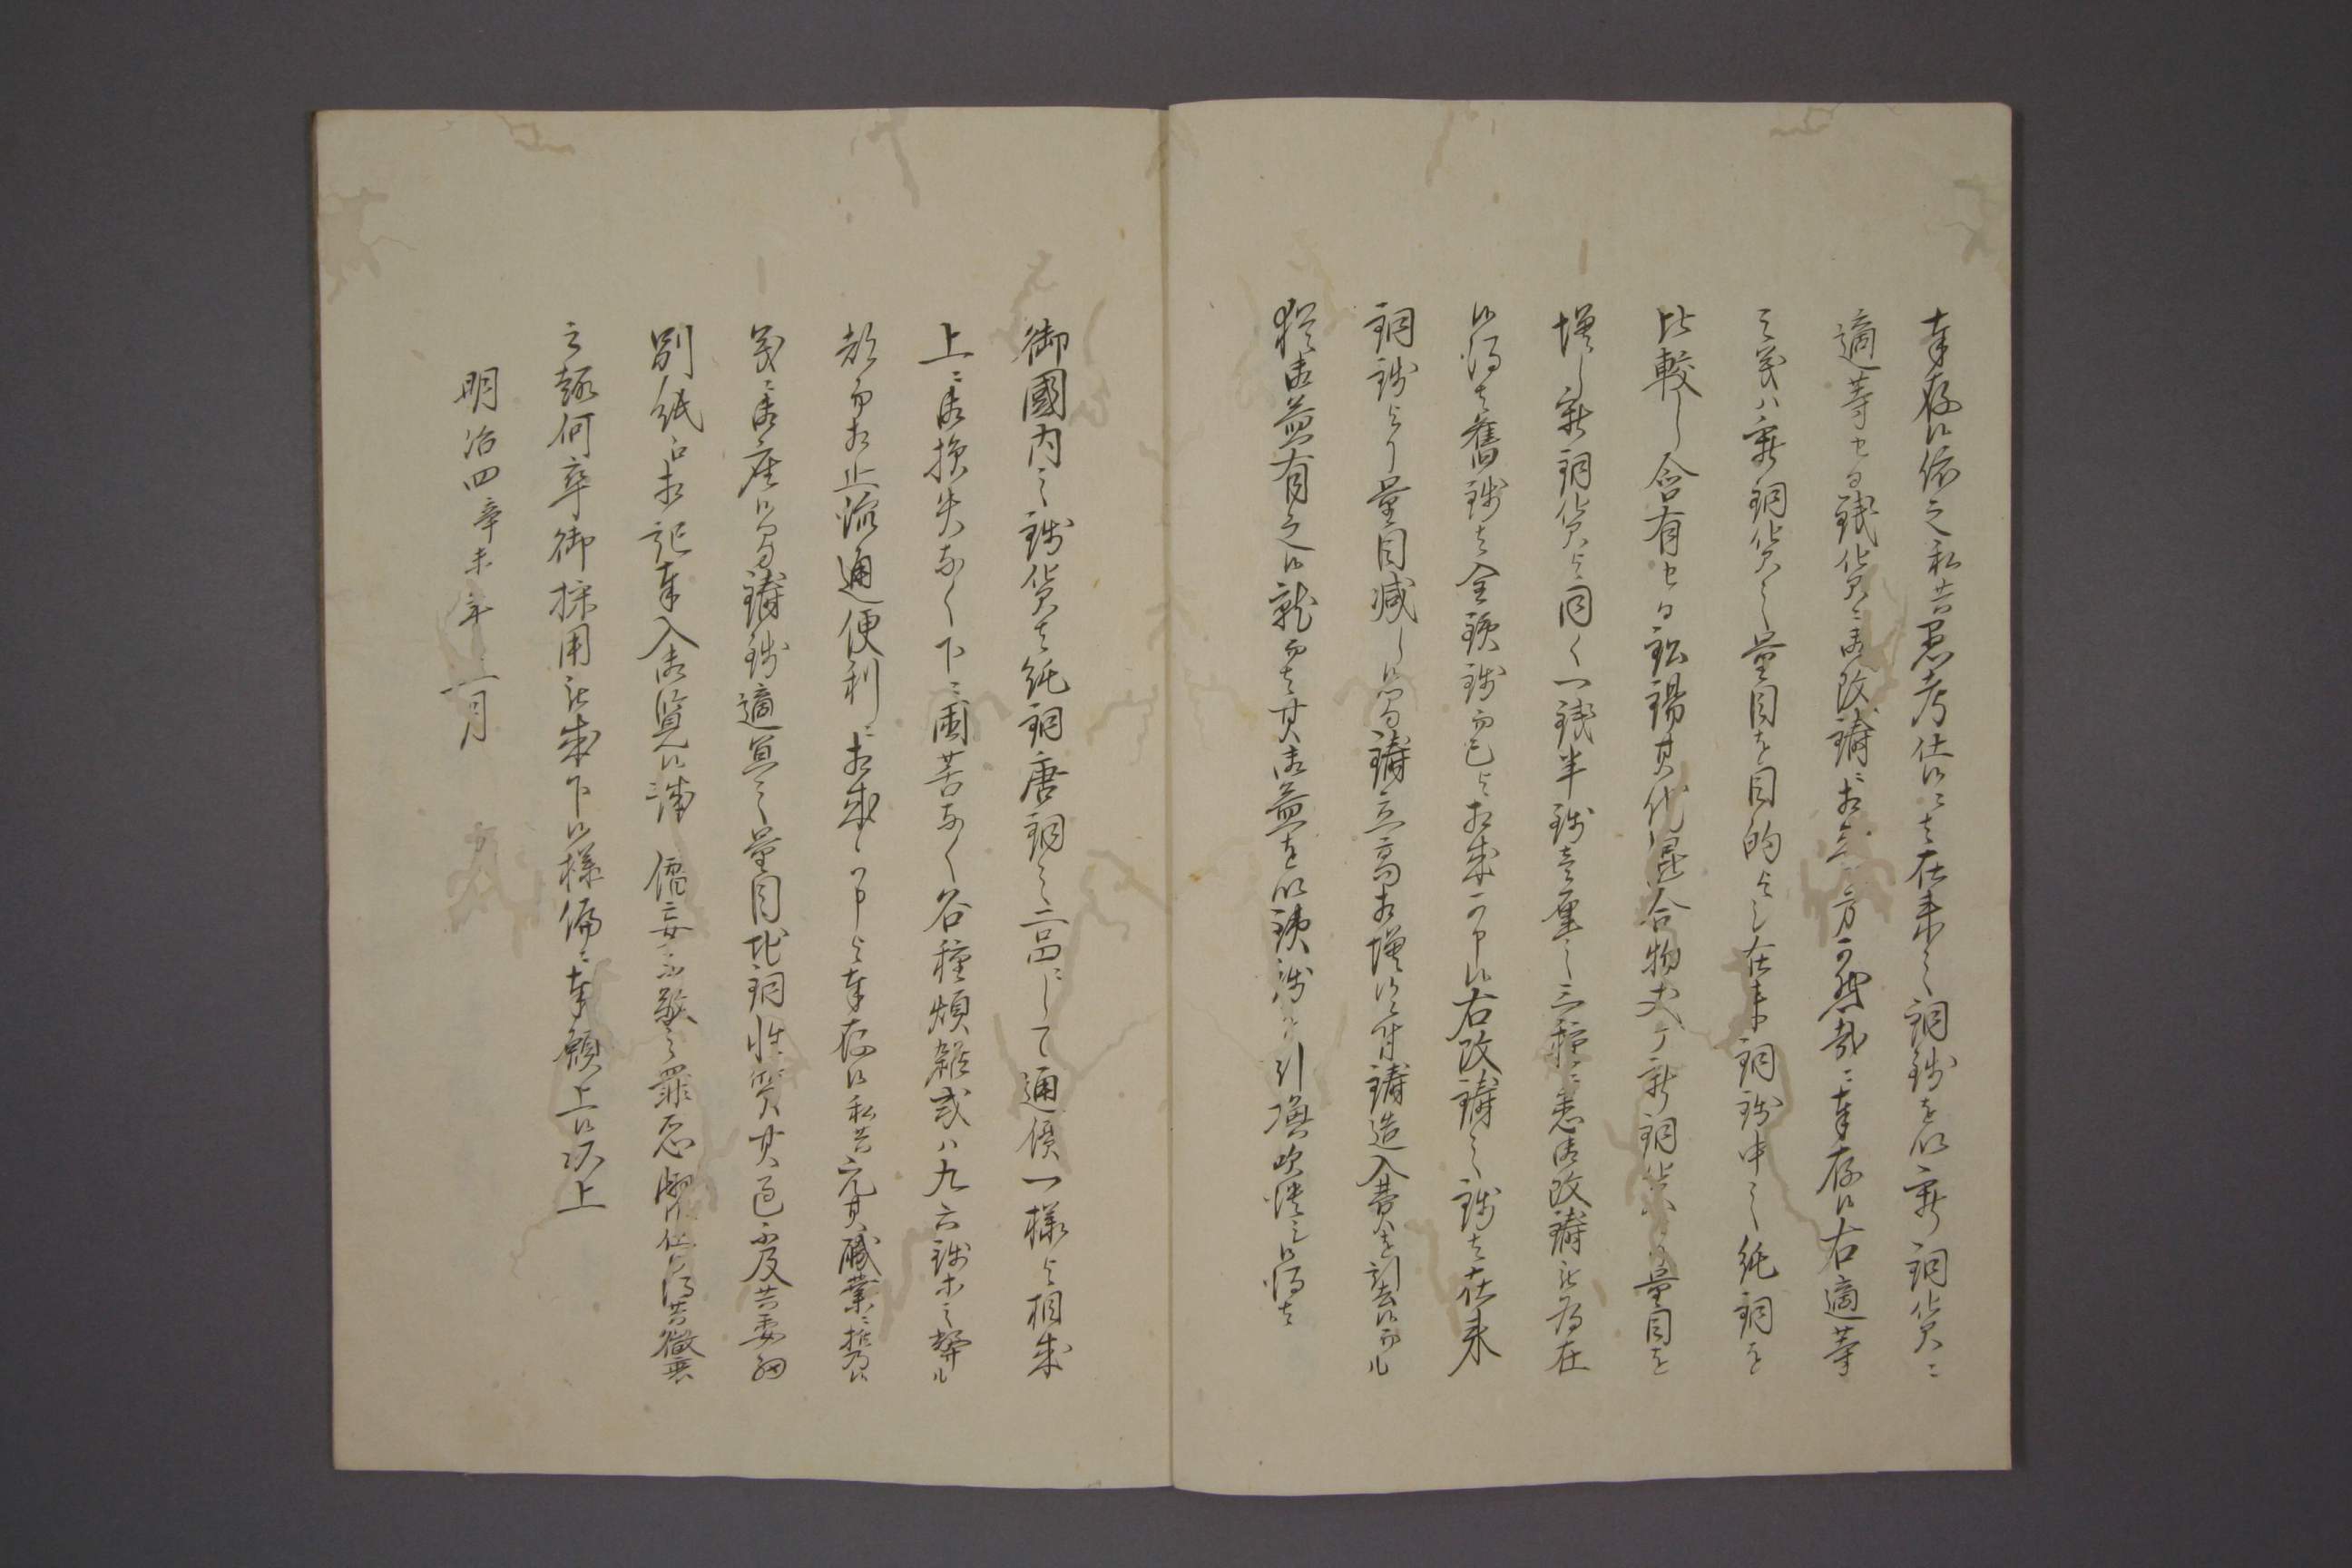 奉存候依之私共愚考仕候ニ者在来之銅銭を以新銅貨ニ
適等セる銭貨ニ御改鋳ニ相成方可然哉ニ奉存候右適等
之義ハ新銅貨之量目を目的としし在来銅銭中之純銅を
比較し含有セる鉛錫其他混合物丈ケ新銅貨より量目を
増し新銅貨と同く一銭半銭壱厘之三種ニ悉御改鋳被為在
候得者旧銭者全鉄銭而已と相成可申候右改鋳之銭者在来
銅銭より量目減し候間鋳立高相増候ニ付鋳造入費を引去候而も
猶御益有之候就而者其御益を以鉄銭ヲ引換吹潰し候得者
御國内之銭貨者純銅唐銅之二品にして通價一様と相成
上ニ御損失なく下ニ困苦なく各種煩雑或ハ九六銭等之弊ル
都而相止流通便利ニ相成可申と奉存候私共元其職業ニ携乃候
義ニ御座候間鋳銭適宜之量目地銅性質其色不及共委細
別紙ニ相記奉入御覧候誠ニ僭妄不敬之罪恐懼仕候得共微衷
之趣何卒御採用被成下候様偏ニ奉願上候以上
明治四辛未年二月